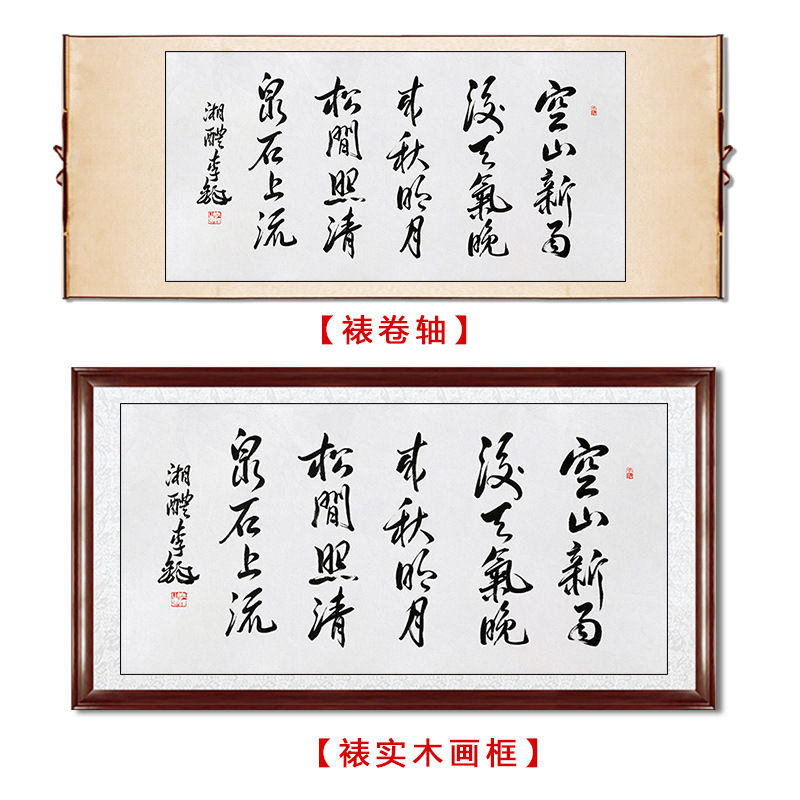 空山新雨
後天氣晚
来秋明月
松間照清
泉石上流
湘醴李
【裱卷轴】
空山新雨
後天氣晚
来秋明月
松間照清
泉石上流
湘醴李
【裱实木画框】